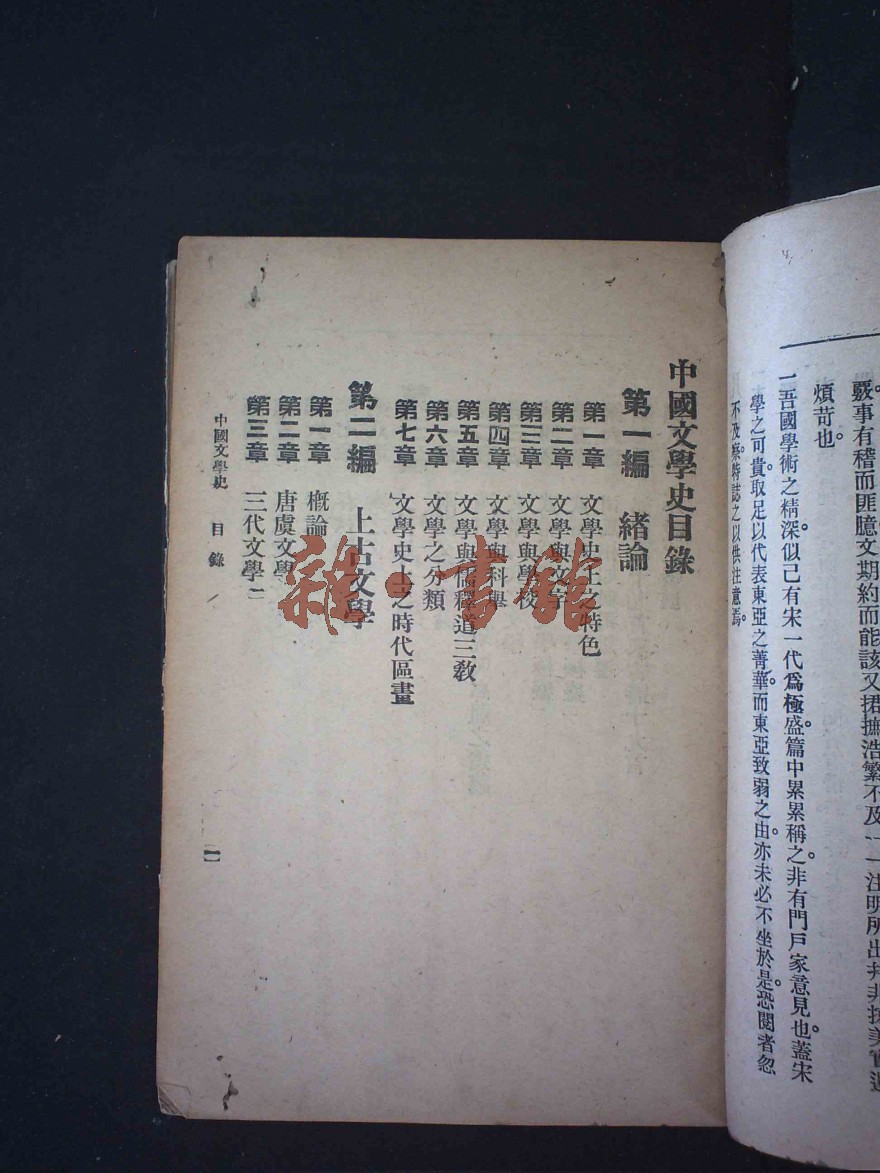 覈事有稽而匪臆文期約而能該又捃摭浩繁不及一一注明所出幷非掠美
煩苛也。
一吾國學術之精深。似已有宋一代爲極盛。篇中累累稱之。非有門戶家意見也。蓋宋
學之可貴。取足以代表東亞之菁華。而東亞致弱之由。亦未必不坐於是。恐閱者忽
不及察。特誌之以供注意焉。
中國文學史目錄
第一編 緒論
第一章 文學史上之特色
第二章 文學與文字
第三章 文學與學校
第四章 文學與科舉
第五章 文學與儒釋道三敎
第六章 文學之分類
第七章 文學史上之時代區畫
第二編 上古文學
第一章 概論
第二章 唐虞文學
第三章 三代文學
中國文學史 目錄
一
雜·書館